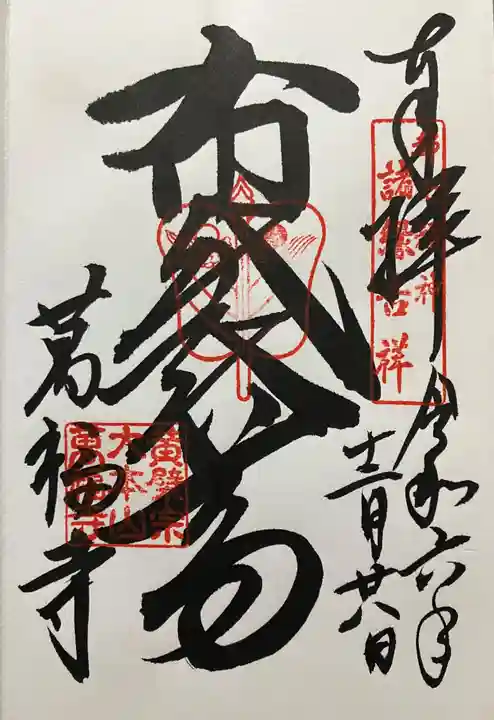 奉拝
令和六年
十二月廿八日
布袋尊
萬福寺
諸縁吉祥
黄檗宗
大本山
萬福寺